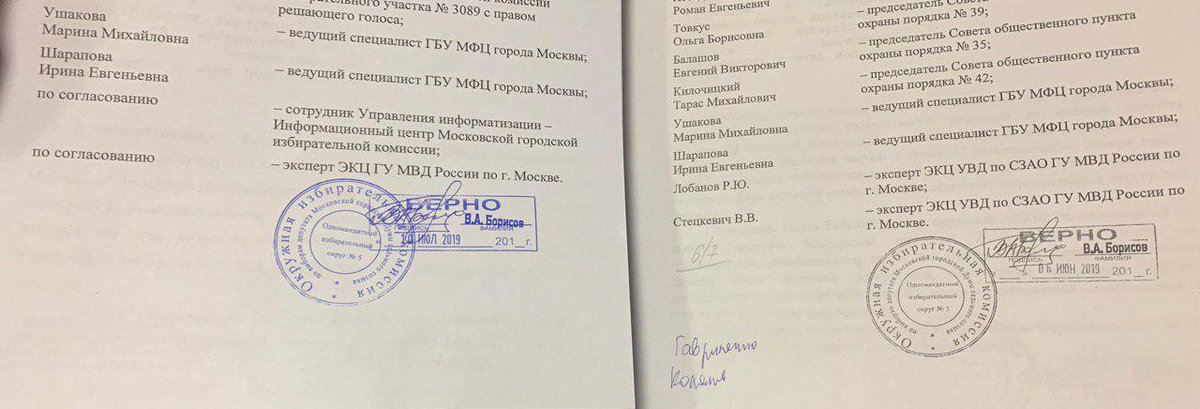 комиссии
участка № 3089 с правом
решающего голоса;
Ушакова
Марина Михайловна
– ведущий специалист ГБУ МФЦ города Москвы;
Шарапова
Ирина Евгеньевна
– ведущий специалист ГБУ МФЦ города Москвы;
по согласованию
– сотрудник Управления информатизации –
Информационный центр Московской городской
избирательной комиссии;
по согласованию
– эксперт ЭКЦ ГУ МВД России по г. Москве.
Окружная избирательная комиссия
по выборам депутата Московской городской Думы седьмого созыва
Одномандатный
избирательный
округ № 5
ВЕРНО
В.А. Борисов
ПОДПИСЬ ФАМИЛИЯ
10 ИЮЛ 2019 201 г.
Роман Евгеньевич
– председатель Совета
охраны порядка № 39;
Товкус
Ольга Борисовна
– председатель Совета общественного пункта
охраны порядка № 35;
Балашов
Евгений Викторович
– председатель Совета общественного пункта
охраны порядка № 42;
Килочицкий
Тарас Михайлович
– ведущий специалист ГБУ МФЦ города Москвы;
Ушакова
Марина Михайловна
– ведущий специалист ГБУ МФЦ города Москвы;
Шарапова
Ирина Евгеньевна
– эксперт ЭКЦ УВД по СЗАО ГУ МВД России по
г. Москве;
Лобанов Р.Ю.
– эксперт ЭКЦ УВД по СЗАО ГУ МВД России по
г. Москве.
Стецкевич В.В.
Окружная избирательная комиссия
по выборам депутата Московской городской Думы седьмого созыва
Одномандатный
избирательный
округ № 5
ВЕРНО
В.А. Борисов
ПОДПИСЬ ФАМИЛИЯ
06 ИЮН 2019 201 г.